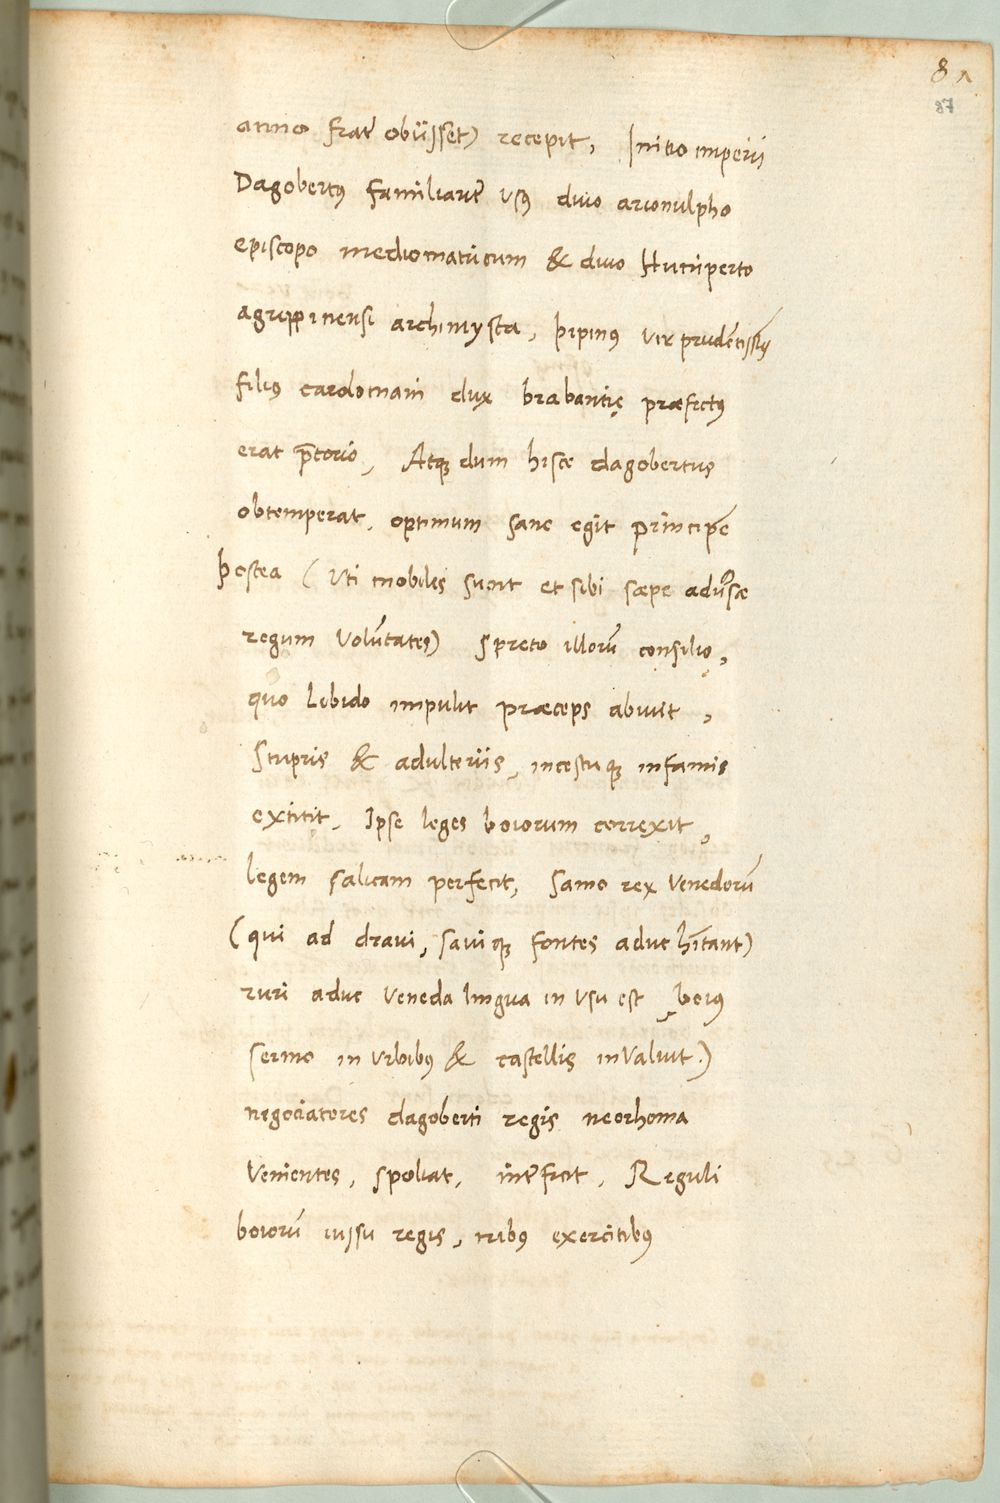 8Λ
87
anno frat̃ obijsset) recepit, Initio imperij
Dagobertꝰ familiarit̃ vsꝰ diuo arionulpho
episcopo mediomatricum & diuo Hunperto
agrippinensi archimysta, pipinꝰ vir prudẽtissimꝰ
filiꝰ cardomain dux brabantię præfectꝰ
erat p̃torio, Atqꝫ dum hisce dagobertus
obtemperat, optimum sane egit principẽ
postea (vti mobiles sunt et sibi sæpe aduersæ
regum volũtates) spreto illorũ consilio,
quo lebido impulit præceps abiuit,
Stupris & adulteriis, incestuqꝫ infamis
extitit, Ipse leges boiorum correxit,
legem salicam perfecit, Samo rex Venedorũ
(qui ad draui, sauiqꝫ fontes aduc hĩtant)
ruri aduc Veneda lingua in vsu est, boiꝰ
sermo in vrbibꝰ & castellis inValuit.)
negociatores dagoberti regis neorhoma
Venientes, spoliat, interficit, Reguli
boiorũ iussu regis, tribꝰ exercitibꝰ